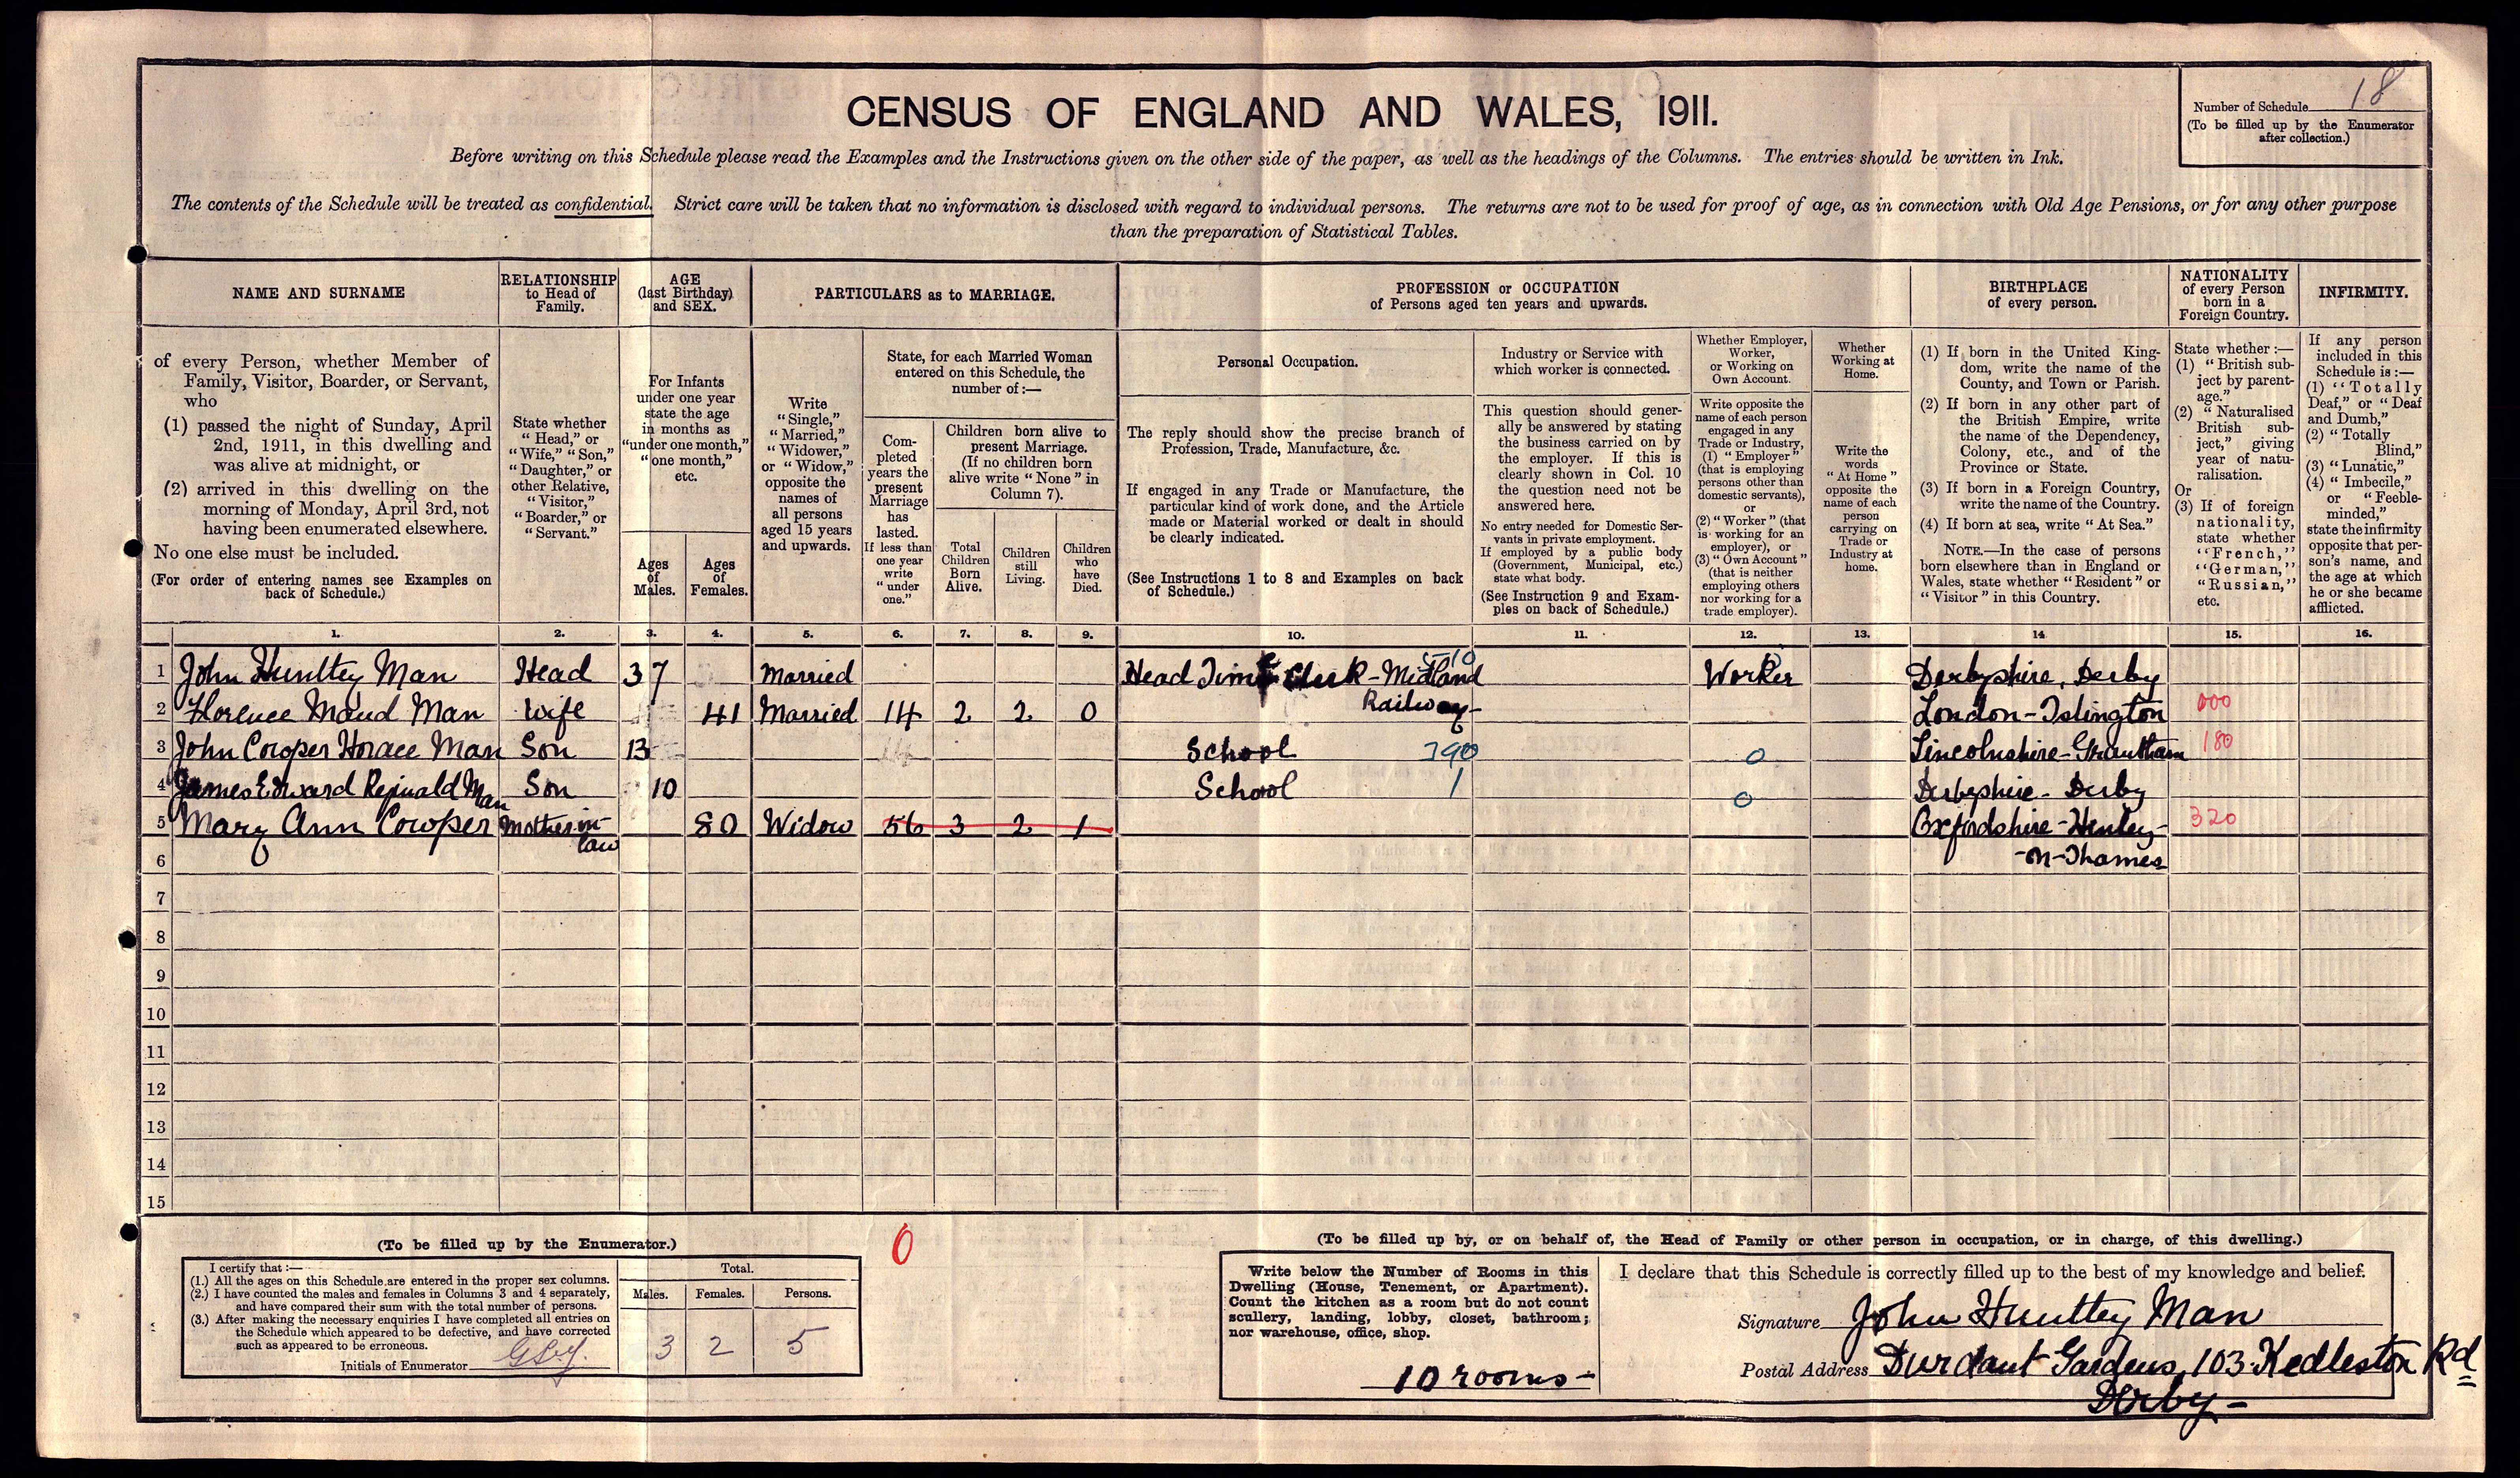 Number of Schedule 18
(To be filled up by the Enumerator
after collection.)
CENSUS OF ENGLAND AND WALES, 1911.
Before writing on this Schedule please read the Examples and the Instructions given on the other side of the paper, as well as the headings of the Columns. The entries should be written in Ink.
The contents of the Schedule will be treated as confidential. Strict care will be taken that no information is disclosed with regard to individual persons. The returns are not to be used for proof of age, as in connection with Old Age Pensions, or for any other purpose
than the preparation of Statistical Tables.
NAME AND SURNAME
of every Person, whether Member of
Family, Visitor, Boarder, or Servant,
who
(1) passed the night of Sunday, April
2nd, 1911, in this dwelling and
was alive at midnight, or
(2) arrived in this dwelling on the
morning of Monday, April 3rd, not
having been enumerated elsewhere.
No one else must be included.
(For order of entering names see Examples on
back of Schedule.)
RELATIONSHIP
to Head of
Family.
State whether
"Head," or
"Wife," "Son,"
"Daughter," or
other Relative,
"Visitor,"
"Boarder," or
"Servant."
AGE
(last Birthday)
and SEX.
For Infants
under one year
state the age
in months as
"under one month,"
"one month,"
etc.
Ages
of
Males.
Ages
of
Females.
PARTICULARS as to MARRIAGE.
Write
"Single,"
"Married,"
"Widower,"
or "Widow,"
opposite the
names of
all persons
aged 15 years
and upwards.
State, for each Married Woman
entered on this Schedule, the
number of:—
Com-
pleted
years the
present
Marriage
has
lasted.
If less than
one year
write
"under
one."
Children born alive to
present Marriage.
(If no children born
alive write "None" in
Column 7).
Total
Children
Born
Alive.
Children
still
Living.
Children
who
have
Died.
PROFESSION or OCCUPATION
of Persons aged ten years and upwards.
Personal Occupation.
The reply should show the precise branch of
Profession, Trade, Manufacture, &c.
If engaged in any Trade or Manufacture, the
particular kind of work done, and the Article
made or Material worked or dealt in should
be clearly indicated.
(See Instructions 1 to 8 and Examples on back
of Schedule.)
Industry or Service with
which worker is connected.
This question should gener-
ally be answered by stating
the business carried on by
the employer. If this is
clearly shown in Col. 10
the question need not be
answered here.
No entry needed for Domestic Ser-
vants in private employment.
If employed by a public body
(Government, Municipal, etc.)
state what body.
(See Instruction 9 and Exam-
ples on back of Schedule.)
Whether Employer,
Worker,
or Working on
Own Account.
Write opposite the
name of each person
engaged in any
Trade or Industry,
(1) "Employer"
(that is employing
persons other than
domestic servants),
or
(2) "Worker" (that
is working for an
employer), or
(3) "Own Account"
(that is neither
employing others
nor working for a
trade employer).
Whether
Working at
Home.
Write the
words
"At Home"
opposite the
name of each
person
carrying on
Trade or
Industry at
home.
BIRTHPLACE
of every person.
(1) If born in the United King-
dom, write the name of the
County, and Town or Parish.
(2) If born in any other part of
the British Empire, write
the name of the Dependency,
Colony, etc., and of the
Province or State.
(3) If born in a Foreign Country,
write the name of the Country.
(4) If born at sea, write "At Sea."
NOTE.—In the case of persons
born elsewhere than in England or
Wales, state whether "Resident" or
"Visitor" in this Country.
NATIONALITY
of every Person
born in a
Foreign Country.
State whether:—
(1) "British sub-
ject by parent-
age."
(2) "Naturalised
British sub-
ject," giving
year of natu-
ralisation.
Or
(3) If of foreign
nationality,
state whether
"French,"
"German,"
"Russian,"
etc.
INFIRMITY.
If any person
included in this
Schedule is:—
(1) "Totally
Deaf," or "Deaf
and Dumb,"
(2) "Totally
Blind,"
(3) "Lunatic,"
(4) "Imbecile,"
or "Feeble-
minded,"
state the infirmity
opposite that per-
son's name, and
the age at which
he or she became
afflicted.
1. 2. 3. 4. 5. 6. 7. 8. 9. 10. 11. 12. 13. 14 15. 16.
1 John Huntley Man Head 37 Married Head Time Clerk - Midland Railway - Worker Derbyshire, Derby
2 Florence Maud Man Wife 41 Married 14 2 2 0 London - Islington 000
3 John Cowper Horace Man Son 13 School 390 0 Lincolnshire - Grantham 180
4 James Edward Reginald Man Son 10 School 1 0 Derbyshire - Derby
5 Mary Ann Cowper Mother-in-law 80 Widow 56 3 2 1 Oxfordshire - Henley-on-Thames 320
6
7
8
9
10
11
12
13
14
15
0
(To be filled up by the Enumerator.)
I certify that:—
(1.) All the ages on this Schedule are entered in the proper sex columns.
(2.) I have counted the males and females in Columns 3 and 4 separately,
and have compared their sum with the total number of persons.
(3.) After making the necessary enquiries I have completed all entries on
the Schedule which appeared to be defective, and have corrected
such as appeared to be erroneous.
Initials of Enumerator
Total.
Males. Females. Persons.
3 2 5
(To be filled up by, or on behalf of, the Head of Family or other person in occupation, or in charge, of this dwelling.)
Write below the Number of Rooms in this
Dwelling (House, Tenement, or Apartment).
Count the kitchen as a room but do not count
scullery, landing, lobby, closet, bathroom;
nor warehouse, office, shop.
10 rooms -
I declare that this Schedule is correctly filled up to the best of my knowledge and belief.
Signature John Huntley Man
Postal Address Durdant Gardens, 103 Kedleston Rd
Derby -